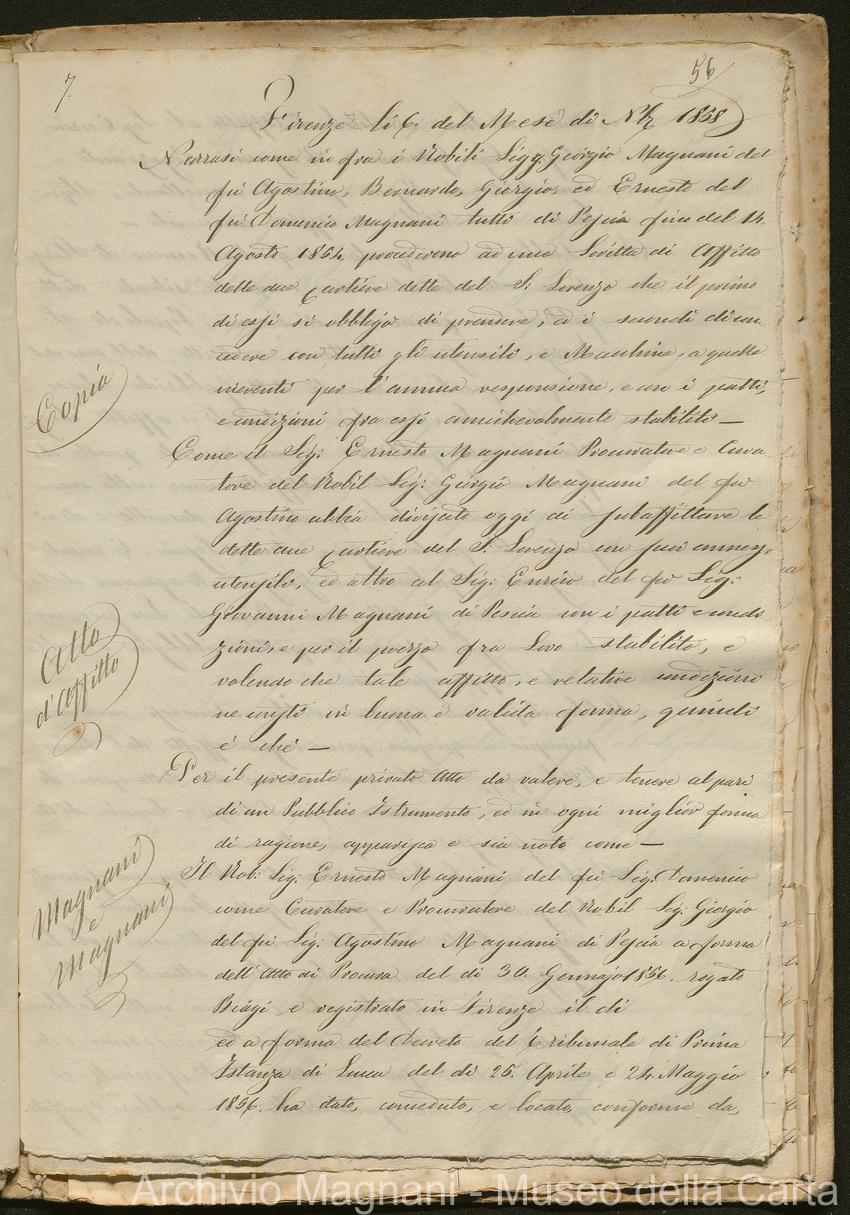 7.
56
Firenze li 6. del Mese di 9bre 1858
Narrasi come in fra i Nobili Sigg. Giorgio Magnani del
fù Agostino, Bernardo, Giorgio, ed Ernesto del
fù Domenico Magnani tutti di Pescia fino del 14.
Agosto 1854 procederono ad una Scritta di Affitto
delle due Cartiere dette del S. Lorenzo che il primo
di essi si obbligò di prendere, ed i secondi di con
cedere con tutti gli utensili, e Macchine, a quelle
inerenti per l'annua responsione, e con i patti,
e condizioni fra essi amichevolmente stabilite —
Copia
Come il Sig: Ernesto Magnani Procuratore e Cura
tore del Nobil Sig: Giorgio Magnani del fù
Agostino abbia divisato oggi di subaffittare le
dette due Cartiere del S. Lorenzo con suoi annessi
utensili, ed altro al Sig: Enrico del fù Sig:
Giovanni Magnani di Pescia con i patti e condi
zioni, e per il prezzo fra Loro stabilito, e
volendo che tale affitto, e relative condizioni
ne consti in buona e valida forma, quindi
è che —
Atto
d'Affitto
Per il presente privato Atto da valere, e tenere al pari
di un Pubblico Istrumento, ed in ogni miglior forma
di ragione, apparisca e sia noto come —
Magnani
e
Magnani
Il Nob: Sig: Ernesto Magnani del fù Sig: Domenico
come Curatore e Procuratore del Nobil Sig: Giorgio
del fù Sig: Agostino Magnani di Pescia a forma
dell'Atto di Procura del dì 30. Gennajo 1856. rogato
Biagi e registrato in Firenze il dì
ed a forma del Decreto del Tribunale di Prima
Istanza di Lucca del dì 25. Aprile e 24. Maggio
1856. ha dato, conceduto, e locato, conforme dà,
Archivio Magnani - Museo della Carta